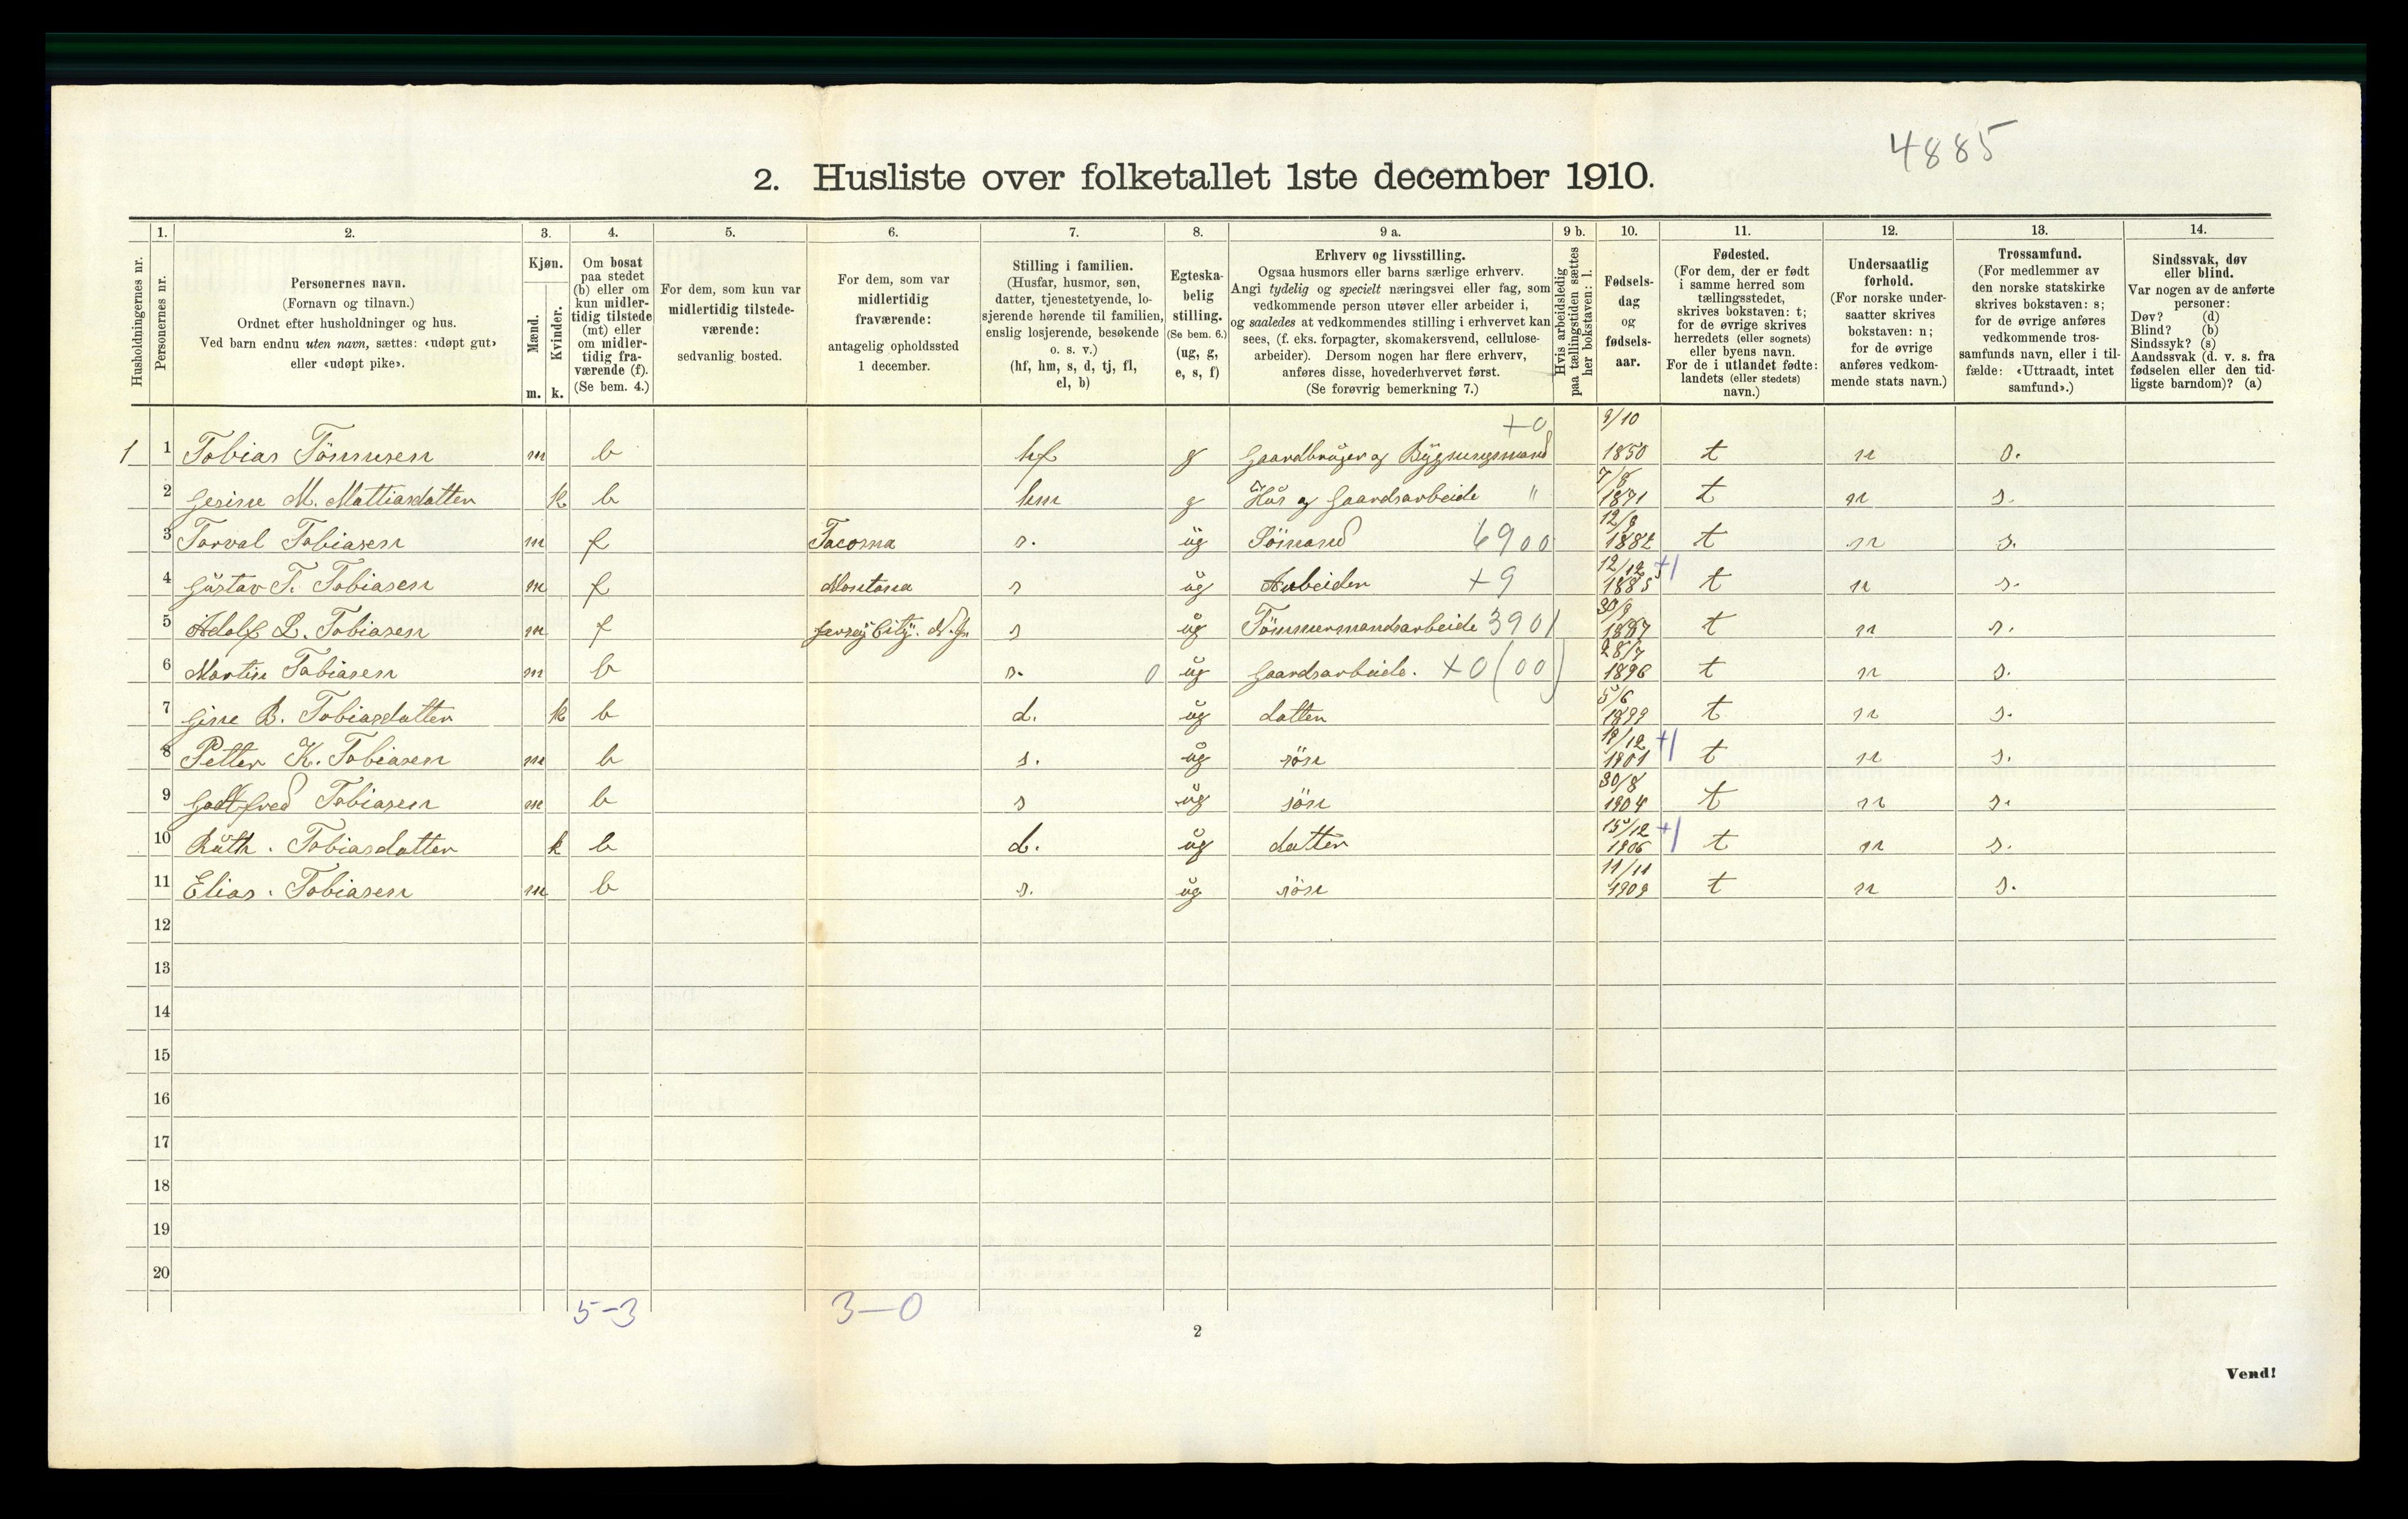 4885
2. Husliste over folketallet 1ste december 1910.
1. 2. 3. 4. 5. 6. 7. 8. 9 a. 9 b. 10. 11. 12. 13. 14.
Husholdningernes nr.
Personernes nr.
Personernes navn.
(Fornavn og tilnavn.)
Ordnet efter husholdninger og hus.
Ved barn endnu uten navn, sættes: «udøpt gut»
eller «udøpt pike».
Kjøn.
Mænd.
Kvinder.
m. k.
Om bosat
paa stedet
(b) eller om
kun midler-
tidig tilstede
(mt) eller
om midler-
tidig fra-
værende (f).
(Se bem. 4.)
For dem, som kun var
midlertidig tilstede-
værende:
sedvanlig bosted.
For dem, som var
midlertidig
fraværende:
antagelig opholdssted
1 december.
Stilling i familien.
(Husfar, husmor, søn,
datter, tjenestetyende, lo-
sjerende hørende til familien,
enslig losjerende, besøkende
o. s. v.)
(hf, hm, s, d, tj, fl,
el, b)
Egteska-
belig
stilling.
(Se bem. 6.)
(ug, g,
e, s, f)
Erhverv og livsstilling.
Ogsaa husmors eller barns særlige erhverv.
Angi tydelig og specielt næringsvei eller fag, som
vedkommende person utøver eller arbeider i,
og saaledes at vedkommendes stilling i erhvervet kan
sees, (f. eks. forpagter, skomakersvend, cellulose-
arbeider). Dersom nogen har flere erhverv,
anføres disse, hovederhvervet først.
(Se forøvrig bemerkning 7.)
Hvis arbeidsledig
paa tællingstiden sættes
her bokstaven: l.
Fødsels-
dag
og
fødsels-
aar.
Fødested.
(For dem, der er født
i samme herred som
tællingsstedet,
skrives bokstaven: t;
for de øvrige skrives
herredets (eller sognets)
eller byens navn.
For de i utlandet fødte:
landets (eller stedets)
navn.)
Undersaatlig
forhold.
(For norske under-
saatter skrives
bokstaven: n;
for de øvrige
anføres vedkom-
mende stats navn.)
Trossamfund.
(For medlemmer av
den norske statskirke
skrives bokstaven: s;
for de øvrige anføres
vedkommende tros-
samfunds navn, eller i til-
fælde: «Uttraadt, intet
samfund».)
Sindssvak, døv
eller blind.
Var nogen av de anførte
personer:
Døv? (d)
Blind? (b)
Sindssyk? (s)
Aandssvak (d. v. s. fra
fødselen eller den tid-
ligste barndom)? (a)
+0 9/10
1 1 Tobias Tönnesen m b hf g Gaardbruger og Bygningsmand 1850 t n s.
7/8
2 Gesine M. Mattiasdatter k b hm g Hus og Gaardsarbeide " 1871 t n s.
12/9
3 Torval Tobiasen m f Tacoma s. ug Sömand 6900 1882 t n s.
12/12 +1
4 Gustav T. Tobiasen m f Montana s ug Arbeider +9 1885 t n s.
30/9
5 Adolf L. Tobiasen m f Jersey City. s ug Tömmermandsarbeide 3901 1887 t n s.
28/7
6 Martin Tobiasen m b s. 0 ug Gaardsarbeide. +0 (00) 1896 t n s.
5/6
7 Gine B. Tobiasdatter k b d. ug datter 1899 t n s.
+1
8 Petter K. Tobiasen m b s. ug sön 1901 t n s.
30/8
9 Godtfred Tobiasen m b s ug sön 1904 t n s.
15/12 +1
10 Ruth. Tobiasdatter k b d. ug datter 1906 t n s.
11/11
11 Elias. Tobiasen m b s. ug sön 1909 t n s.
12
13
14
15
16
17
18
19
20
5-3 3-0
2
Vend!